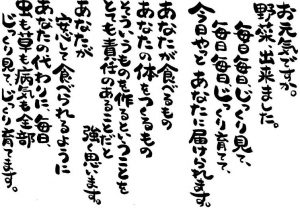 お元気ですか。
野菜、出来ました。
毎日毎日じっくり見て、
毎日毎日じっくり育てて、
今日やっとあなたに届けられます。
あなたが食べるもの
あなたの体をつくるもの
そういうものを作るということを
とても責任のあることだと
強く思います。
あなたが
安心して食べられるように
あなたの代わりに、毎日、
虫も草も病気も全部
じっくり見て、じっくり育てます。